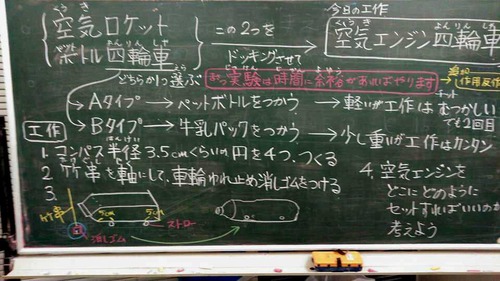 今日の工作
空気ロケット
ボトル四輪車
この2つを
ドッキングさせて
空気エンジン四輪車
どちらか1つ選ぶ
実験は時間に余裕があればやります
Aタイプ→ペットボトルをつかう→軽いが工作はちょっとむつかしい
でも2回目
Bタイプ→牛乳パックをつかう→少し重いが工作はカンタン
工作
1. コンパス半径3.5cmくらいの円を4つ、つくる
2. 竹串を軸にして、車輪ゆれ止め消しゴムをつける
3.
竹串
5cm
5cm
消しゴム
ストロー
4. 空気エンジンを
どこにどのように
セットすればいいのか
考えよう